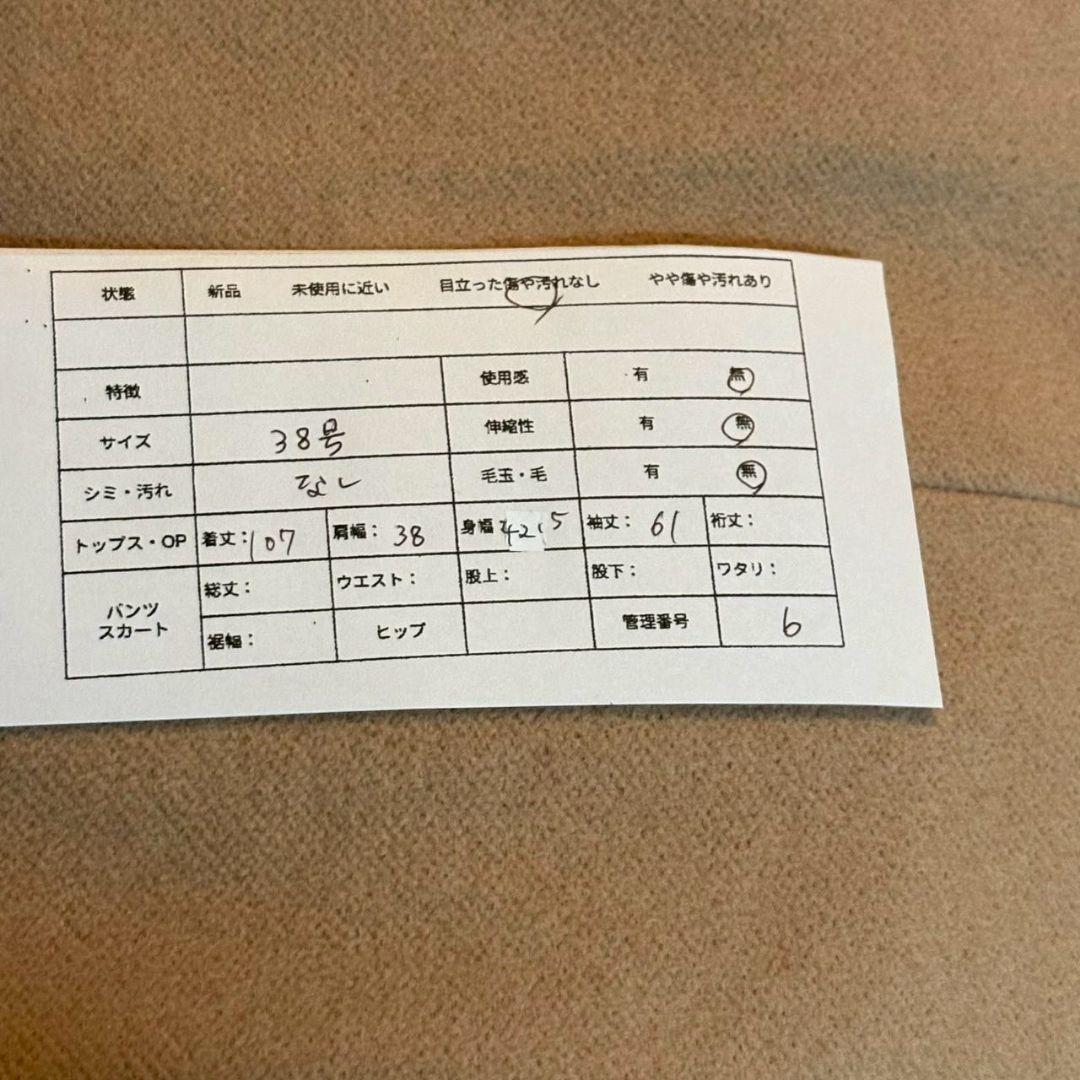 状態 新品 未使用に近い 目立った傷や汚れなし やや傷や汚れあり
特徴 使用感 有 無
サイズ 38号 伸縮性 有 無
シミ・汚れ なし 毛玉・毛 有 無
トップス・OP 着丈:107 肩幅: 38 身幅: 42.5 袖丈: 61 裄丈:
パンツ スカート 総丈: ウエスト: 股上: 股下: ワタリ:
裾幅: ヒップ 管理番号 6